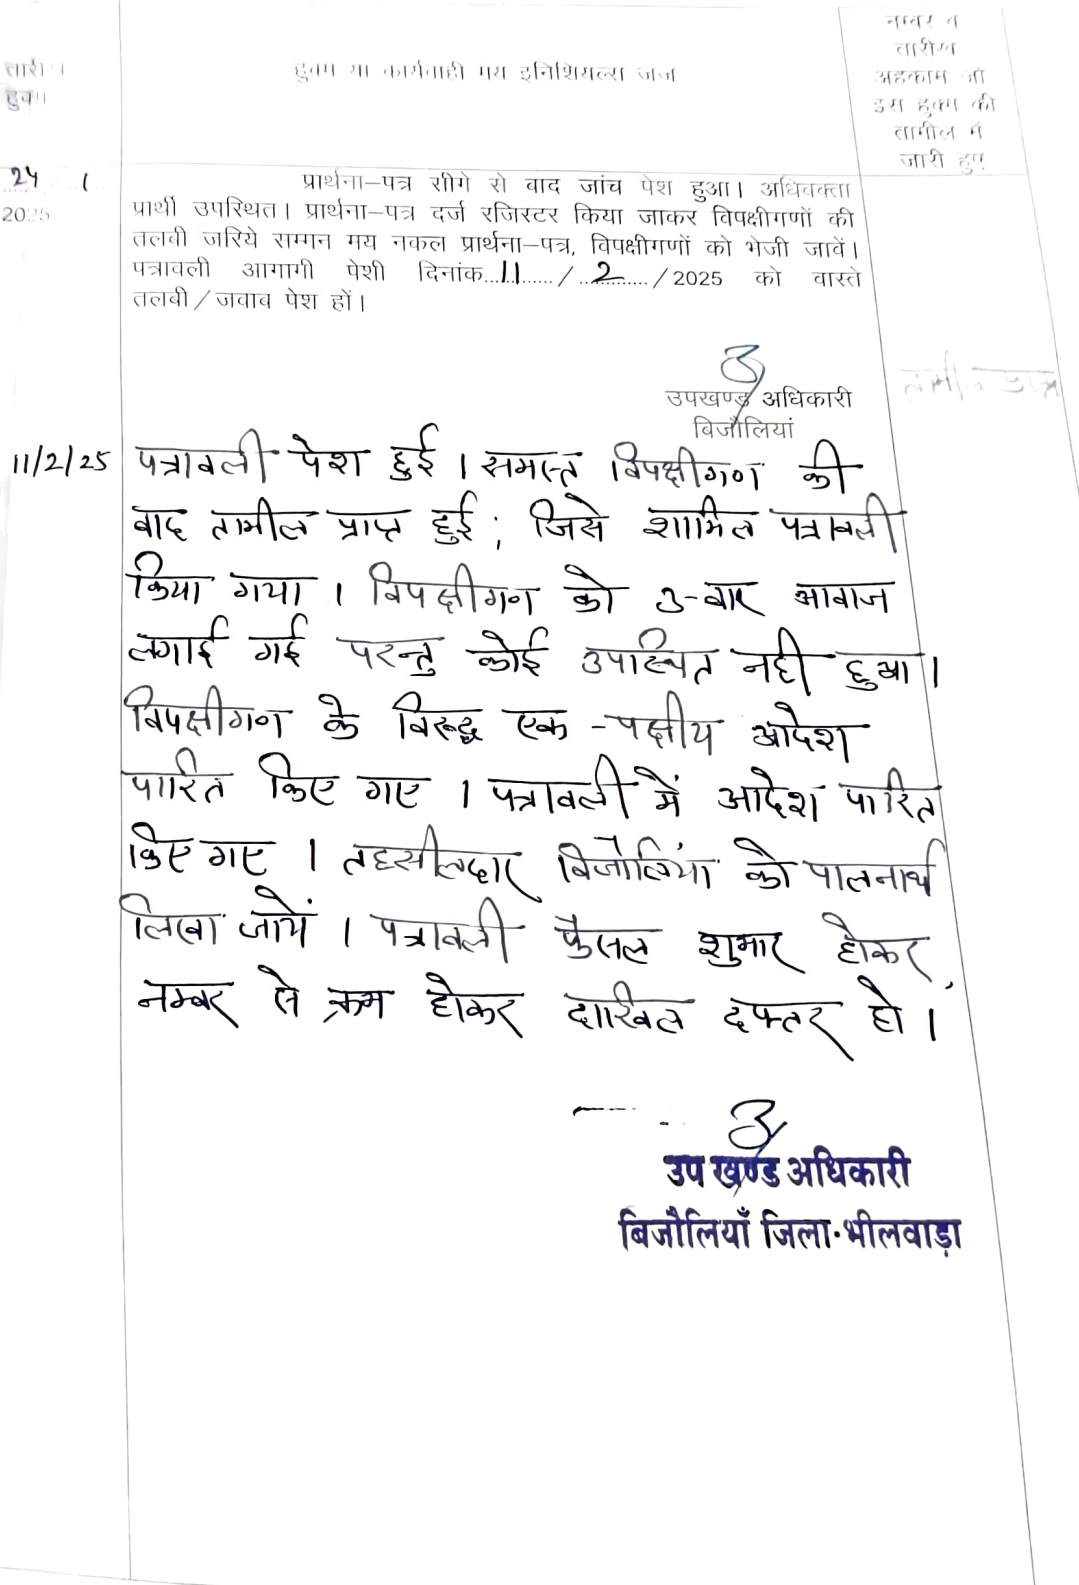 तारीख
हुक्म
हुक्म या कार्यवाही मय इनिशियल्स जज
नम्बर व
तारीख
अहकाम जो
इस हुक्म की
तामील में
जारी हुए
24 1
2025
प्रार्थना–पत्र सीगे से बाद जांच पेश हुआ। अधिवक्ता
प्रार्थी उपस्थित। प्रार्थना–पत्र दर्ज रजिस्टर किया जाकर विपक्षीगणों की
तलवी जरिये सम्मन मय नकल प्रार्थना–पत्र, विपक्षीगणों को भेजी जावें।
पत्रावली आगामी पेशी दिनांक...11....../...2........./2025 को वास्ते
तलवी/जवाब पेश हों।
उपखण्ड अधिकारी
बिजौलियां
11/2/25 पत्रावली पेश हुई। समस्त विपक्षीगण की
बाद तामील प्राप्त हुई; जिसे शामिल पत्रावली
किया गया। विपक्षीगण को 3-बार आवाज
लगाई गई परन्तु कोई उपस्थित नही हुआ।
विपक्षीगण के विरूद्ध एक-पक्षीय आदेश
पारित किए गए। पत्रावली में आदेश पारित
किए गए। तहसीलदार बिजौलियां को पालनार्थ
लिखा जायें। पत्रावली फैसल शुमार होकर,
नम्बर से क्रम होकर दाखिल दफ्तर हो।
उप खण्ड अधिकारी
बिजौलियाँ जिला-भीलवाड़ा